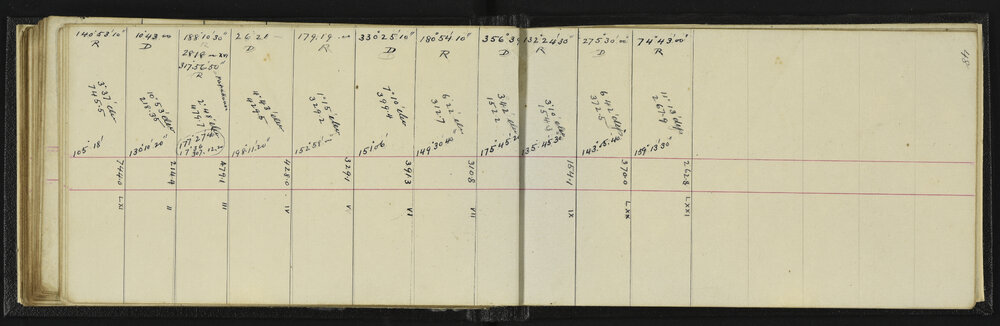 48
140°53'10"
R
3°37' elev
745.5
105°18'
744.0
LXI
10°43'00
D
10°53' elev
218.35
130°10'20"
214.4
II
188°10'30"
R
281°8
317°56'50"
R
2°48' elev
479.7
177°27'40
479.1
III
26°21
D
4°43' elev
429.5
198°11'20"
428.0
IV
179.19
R
1°15' elev
329.2
152°58'
329.1
V
330°25'10"
D
7°10' elev
394.4
151°06'
391.3
VI
180°54'10"
R
6°22' elev
312.7
149°30'40
310.8
VII
356°39
D
3°42' elev
152.2
175°45'20
132°24'30"
R
3°10' dep
154.3
135°45'30
154.1
IX
275°30'00"
D
6°42' dep
372.5
143°15'40"
370.0
LXX
74°43'00"
R
11°13' dep
267.9
159°13'30"
262.8
LXXI